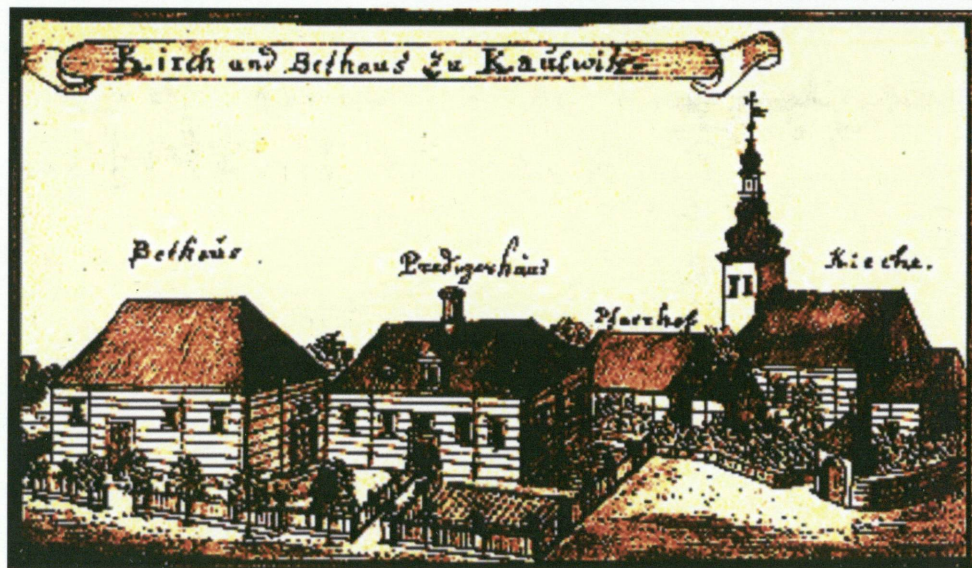 Kirch und Bethaus Zu Kaulwitz
Bethaus
Predigerhaus
Pfarrhof
Kirche.